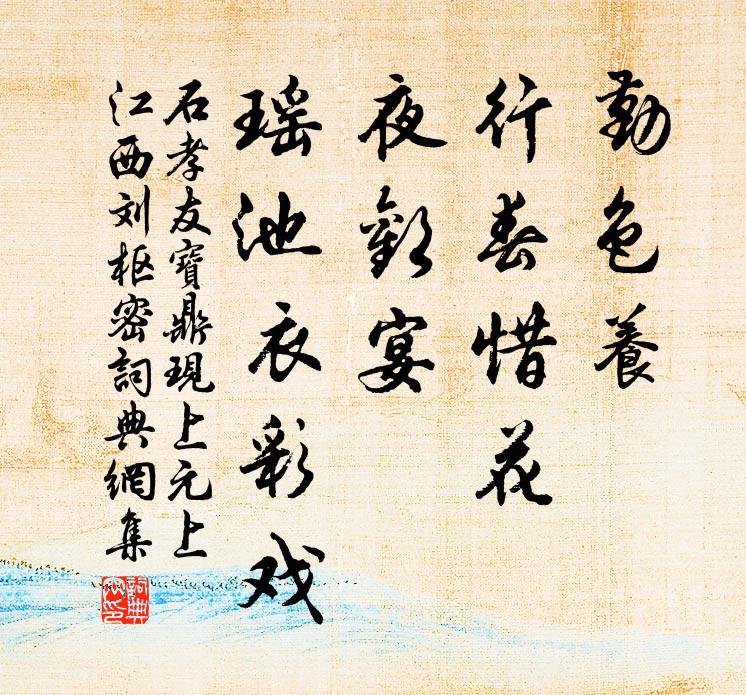 勤色養
行春惜花
夜歡宴
瑶池衣彩戏
石孝友寶鼎現上元上
江西刘枢密詞典網集
詞典